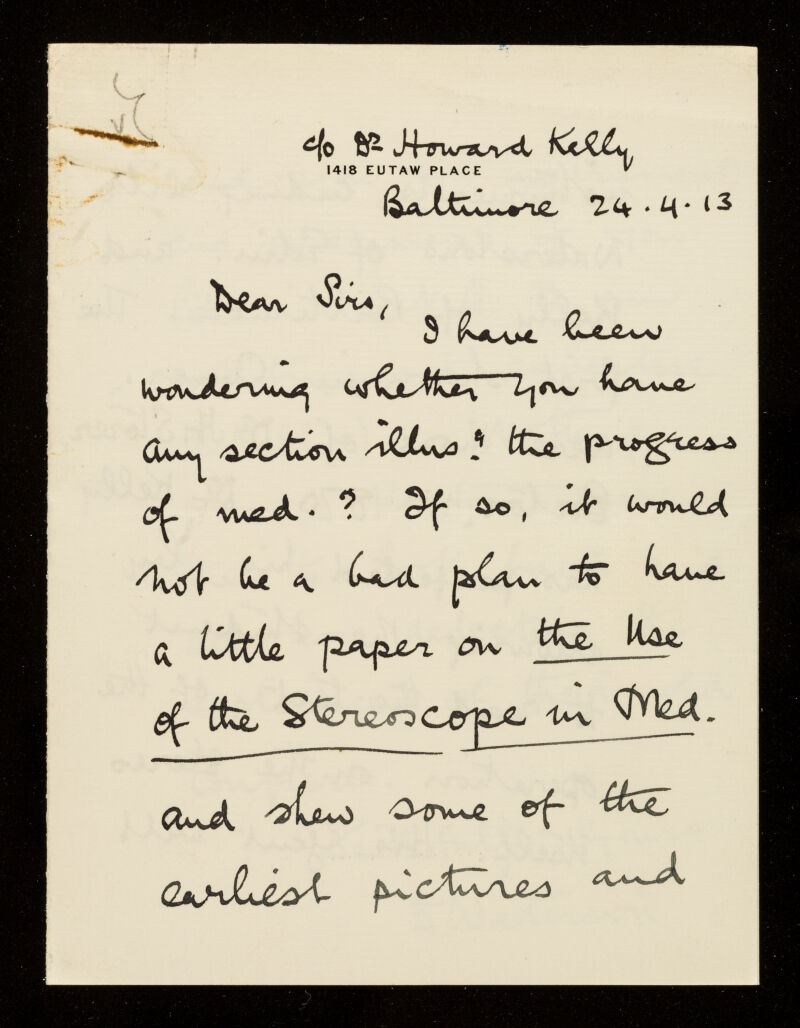 c/o Dr Howard Kelly
1418 EUTAW PLACE
Baltimore 24.4.13
Dear Sirs,
I have been
wondering whether you have
any section illus:g the progress
of med.? If so, it would
not be a bad plan to have
a little paper on the Use
of the Stereoscope in Med.
and shew some of the
earliest pictures and